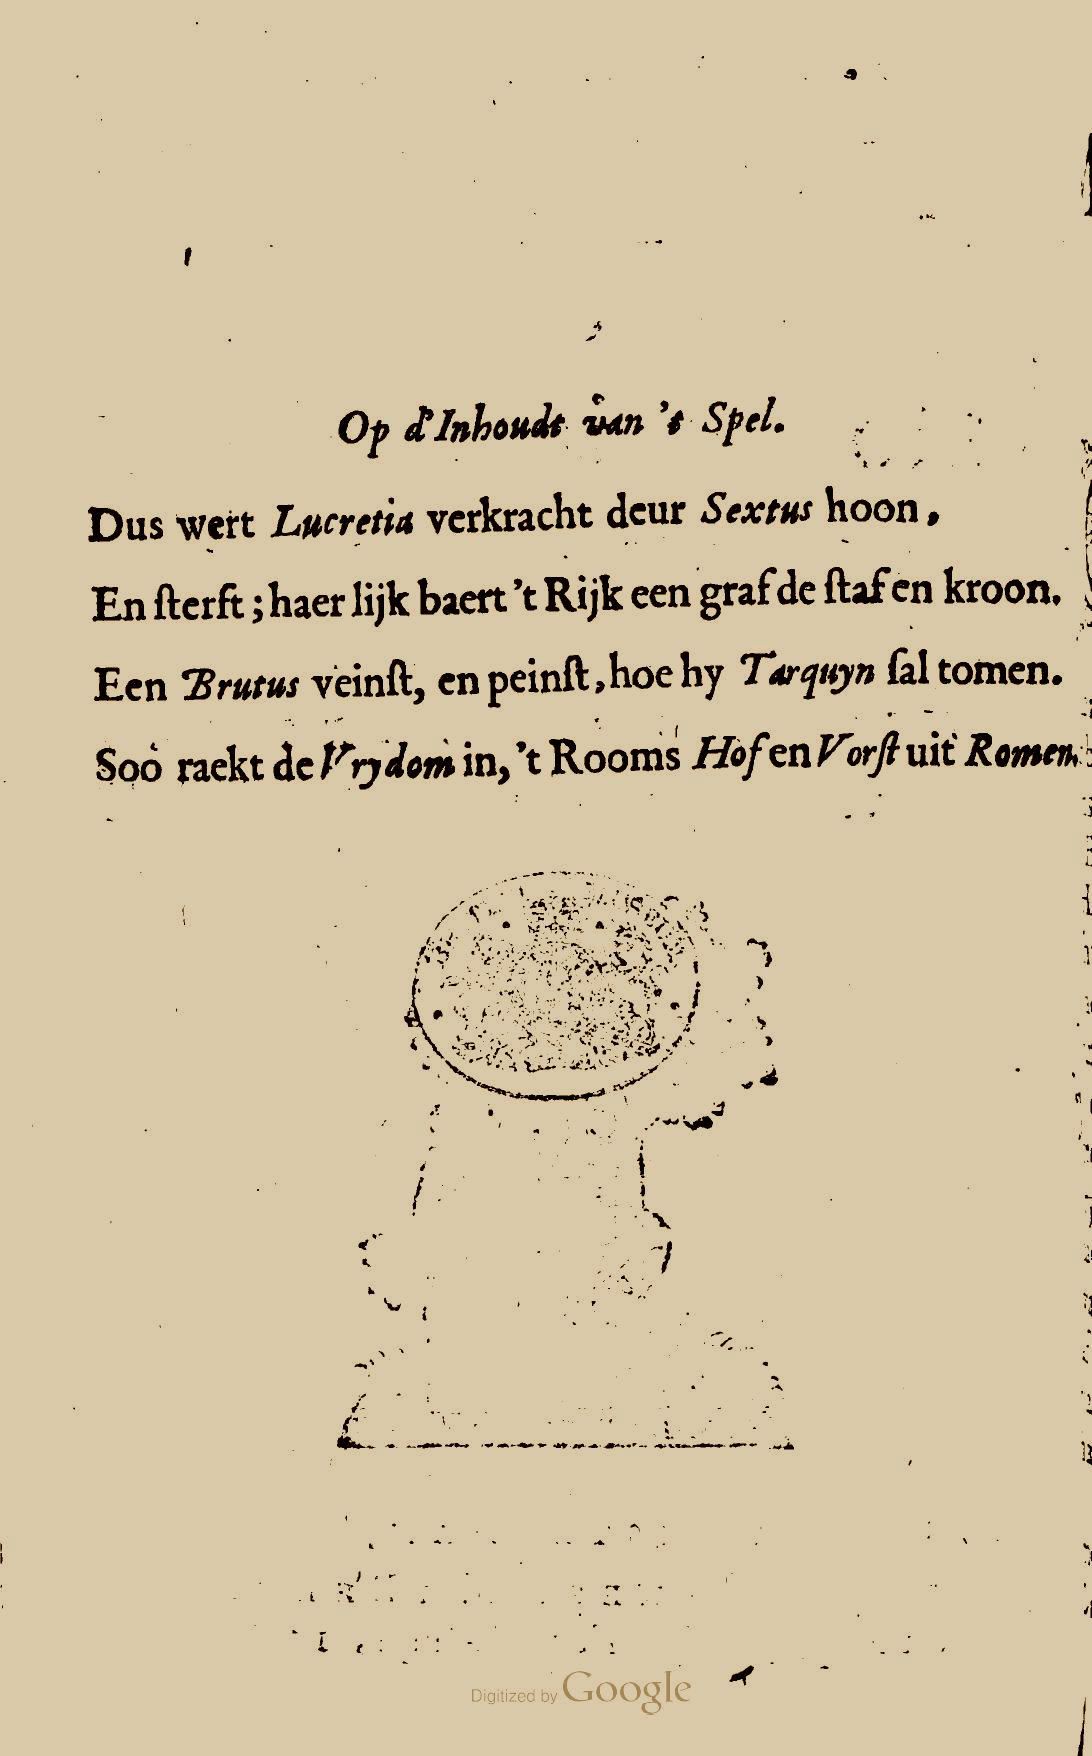 Op d'Inhoudt van 't Spel.
Dus wert Lucretia verkracht deur Sextus hoon,
En ſterft; haer lijk baert 't Rijk een graf de ſtaf en kroon.
Een Brutus veinſt, en peinſt, hoe hy Tarquyn ſal tomen.
Soo raekt de Vrydom in, 't Rooms Hof en Vorſt uit Romen.
Digitized by Google